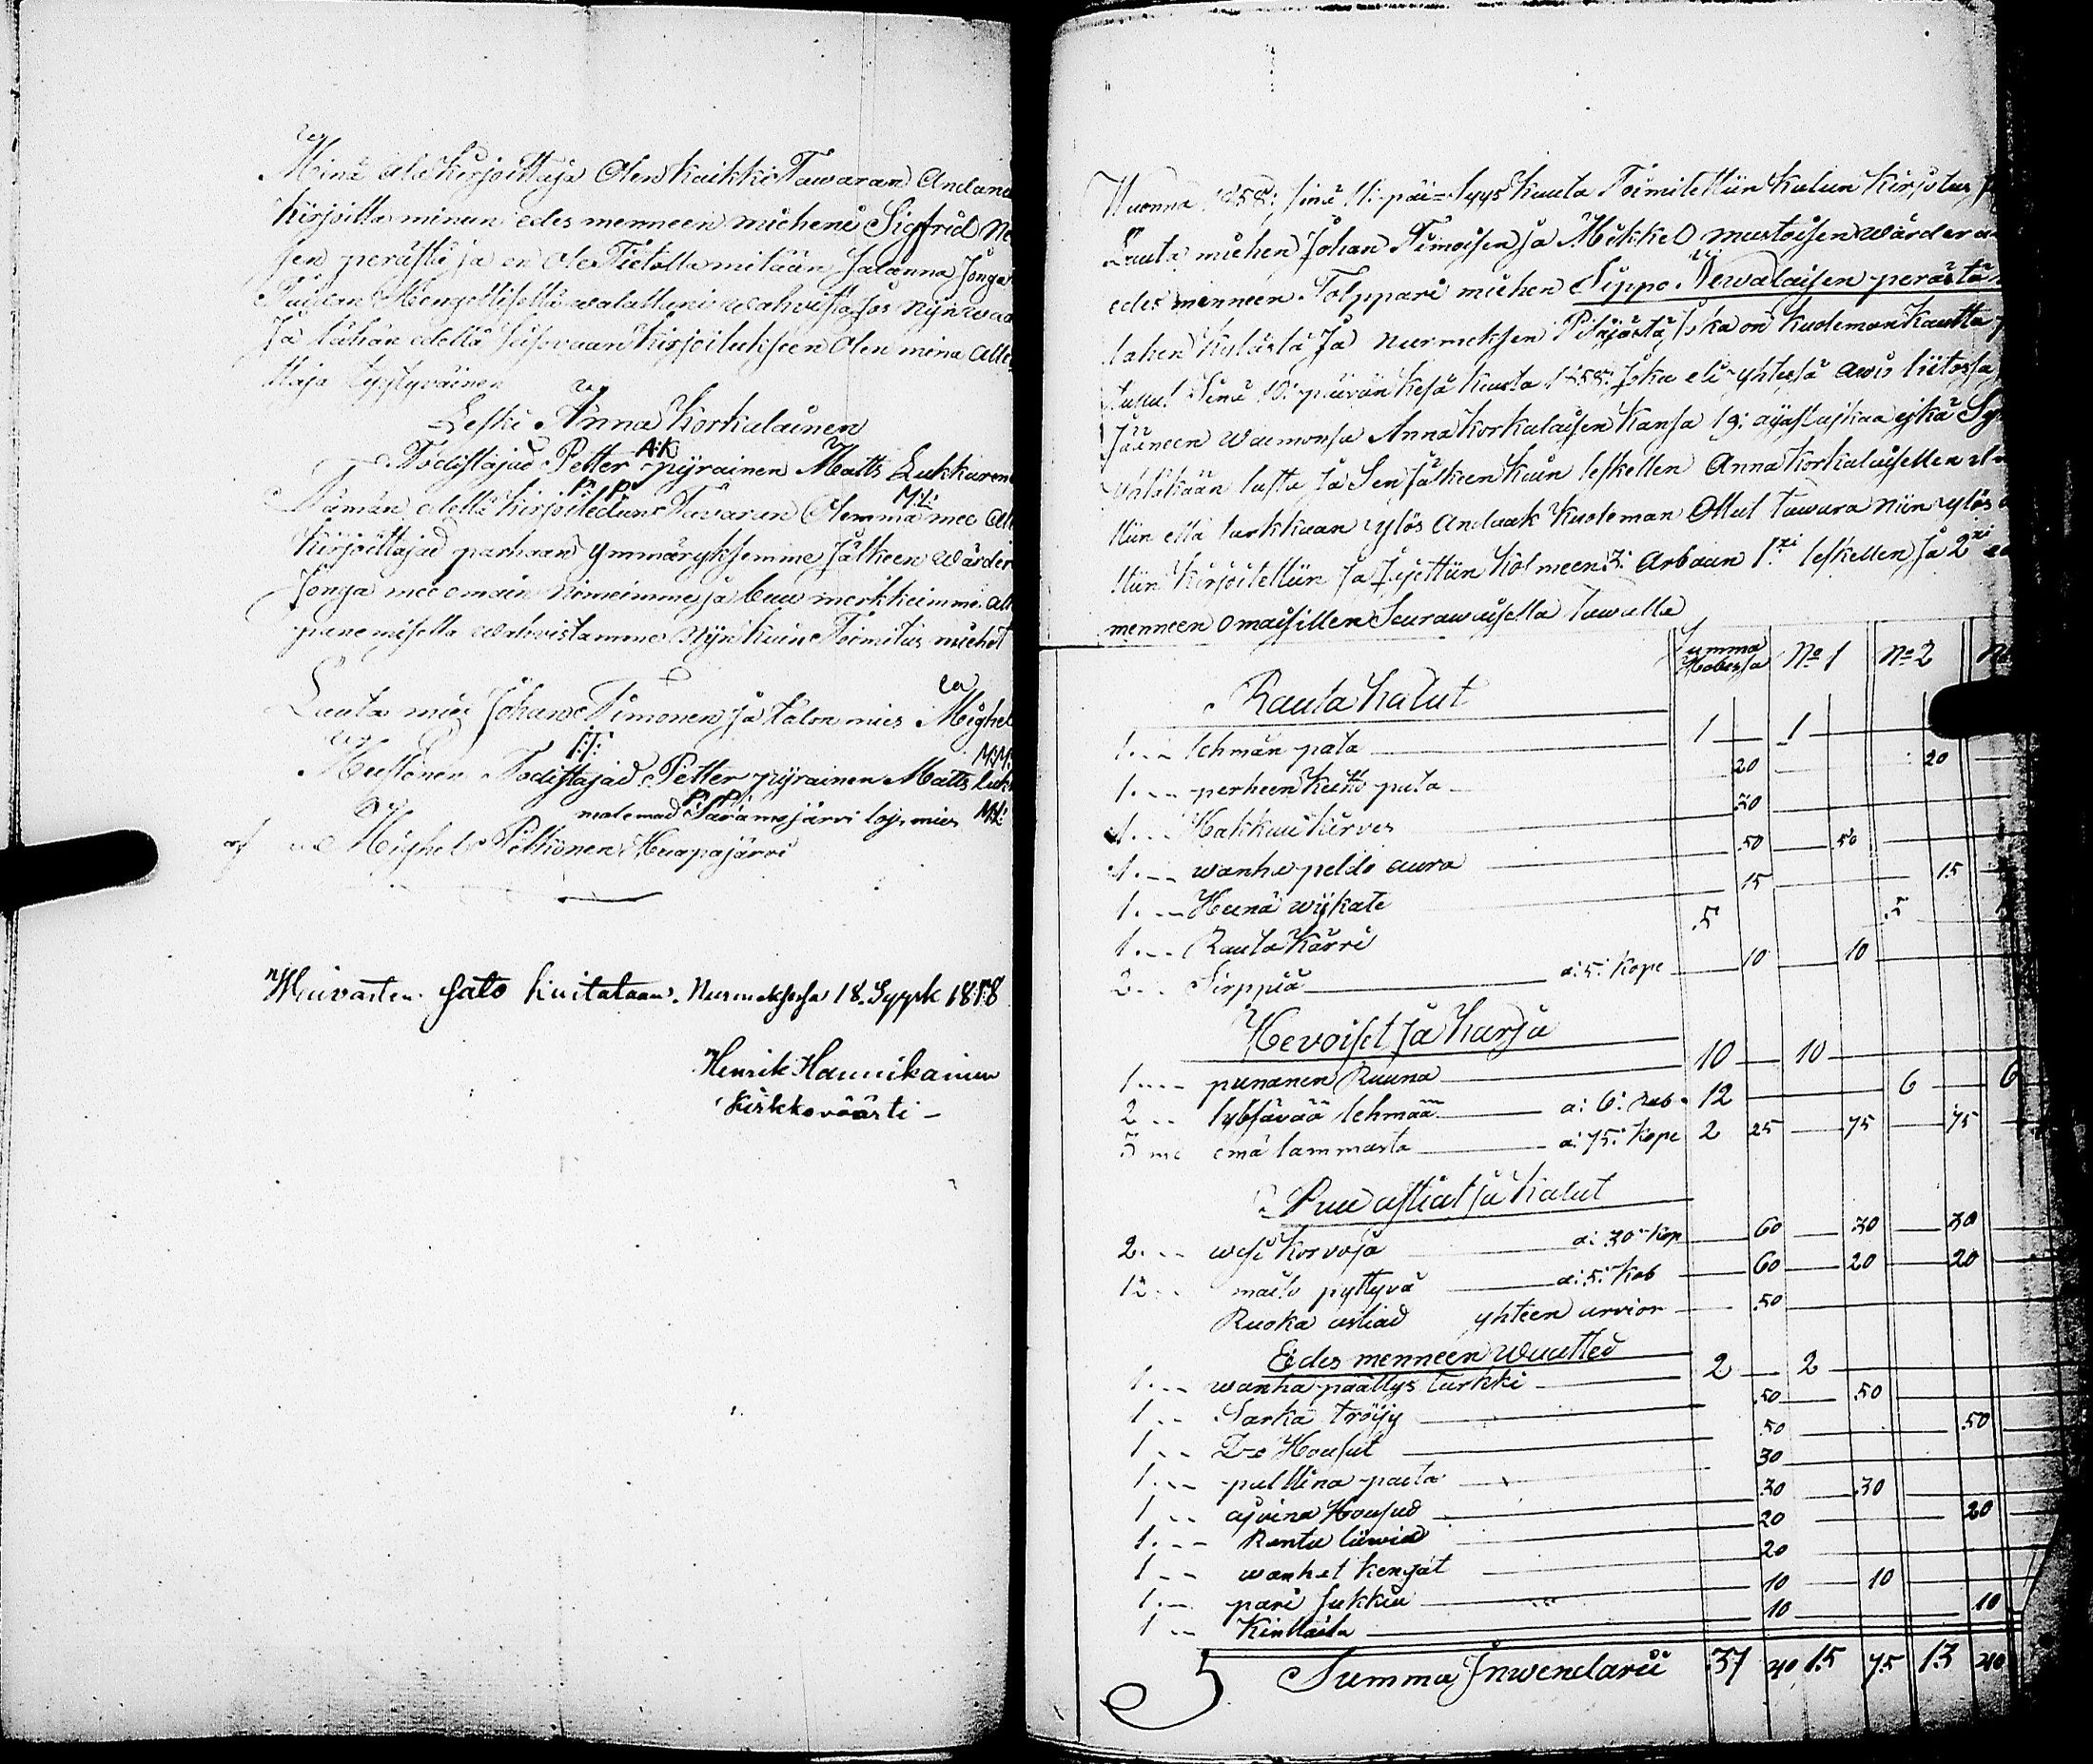 Minä ala kirjoittaja Olen kaikki Tawaran Andanu
kirjoitta minun edes menneen mieheni Sigfrid Ne
sen perästä ja en ole Tietolla mitään salanna Jonga
walalleni wahwista Jos nijn waa
Ja tähän edellä seisovaan kirjoitukseen Olen minä alle
ttaja tyytyväinen
Leski Anna Korkalainen
A:K
Todistajad Petter pyrainen Matts Lukkaren
P: P: M:L:
Tämän edellä kirjoitedun Tavaran Olemma mee all
kirjoittajad parhaan ymmäryksemme Jälkeen wärder
Jonga mee omain nimeimme ja buu merkkeimme all
panemisella wahvistamme Nijn kuin Toimitus miehet
Lauta mies Johan Timonen ja talon mies Mighel
I:T: M:M:
Mustonen Todistajad Petter pyrainen Matts Luk
P: P: M:L:
molemad Saramojärvi lois mies
Mighel Pitkonen Haapajärvi
Waivasten sato kuitataan. Nurmeksessa 18. Syysk 1858
Henrik Hannikainen
Kirkkoväärti –
Wuonna 1858; sinä 11: päi= Syys kuuta Toimitettiin kalun kirjotus
Lauta miehen Johan Timoisen ja Mikkel mustoisen wärdera
edes menneen Tolppari miehen Sippo Newalaisen perästä
lahen kylästä Ja nurmeksen Pitäjästä, Joka on kuoleman kautta
Sinä 10: päivän kesä kuuta 1858: Joka eli yhtessä awio liitossa
Jääneen waimonsa Anna Korkalaisen kansa 19: ajastaikaa ejkä
yhtäkään lasta Ja Sen Jälkeen kuin leskellen Anna Korkalaisellen
ttiin että tarkkaan ylös Andaak kuoleman Ollut tawara niin ylös
ttiin kirjoitettiin Ja Jajettiin kolmeen 3: Arbaan 1:xi leskellen Ja 2:xi
menneen omaisillen Seurawaisella tawalla
Summa Hobessa No 1 No 2 No
Rauta kalut
1. lehmän pata 1 1
1. perheen keitto pata 20 20
1. Hakkuu kirves 30
1. wanha peldo aura 50 50
1. Heinä wijkate 15 15
1. Rauta kärri 5 5
2. Sirppiä a: 5: kope 10 10
Hevoiset ja karja
1. punanen Ruuna 10 10
2. lybsävää lehmää a: 6: rub 12 6 6
3 me emä lammasta a: 75: kope 2 25 75 75
Puu astiat ja kalut
2. wesi korvoja a: 30 kop 60 30 30
12. maito pyttyvä a: 5: kob 60 20 20
Ruoka astiad yhteen arvion 50
Edes menneen waatted
1. wanha päällys turkki 2 2
1. Sarka tröijy 50 50
1 Do Housut 50 50
1. palttina paita 30
1 ajvina Housud 30 30
1. Rantu liiwid 20 20
1 wanhat kengät 20
1. pari sukkia 10 10
1 kinttaita 10 10
5 Summa Inwendarii 37 40 15 75 13 40